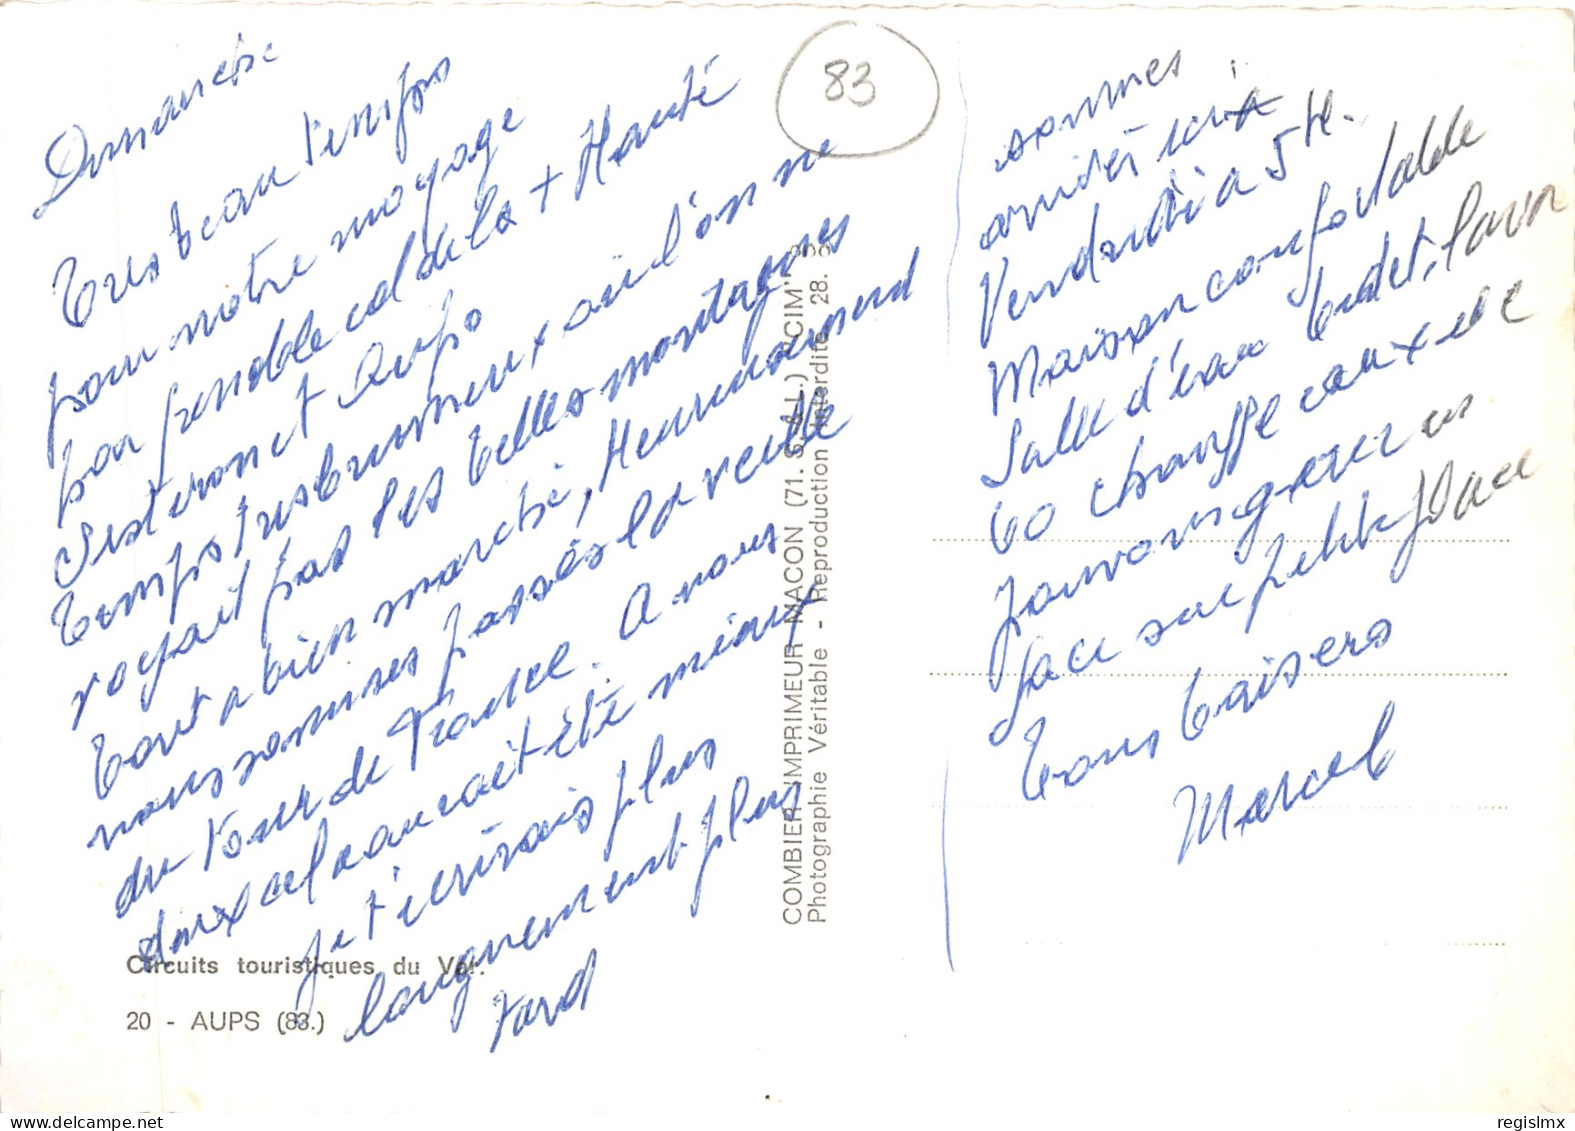 Dimanche
Tres beau temps
pour notre voyage
par col de la + Haute
Sisteron et Aups
Temps tres brumeux où l'on ne
voyait pas les belles montagnes
Tout a bien marché, Heureusement
nous sommes passés la veille
du tour de France. A nous
deux cela aurait été mieux
je t'écrirais plus
longuement plus
tard
sommes
arrivés ici
Vendredi a 5 H.
Maison confortable
Salle d'eau bidet, lavabo
chauffe eau
face sur petite place
Bons baisers
Marcel
83
COMBIER IMPRIMEUR MACON (71. S.-&-L.) "CIM"
Photographie Véritable - Reproduction Interdite 28.
Circuits touristiques du Var.
20 - AUPS (83.)
regislmx